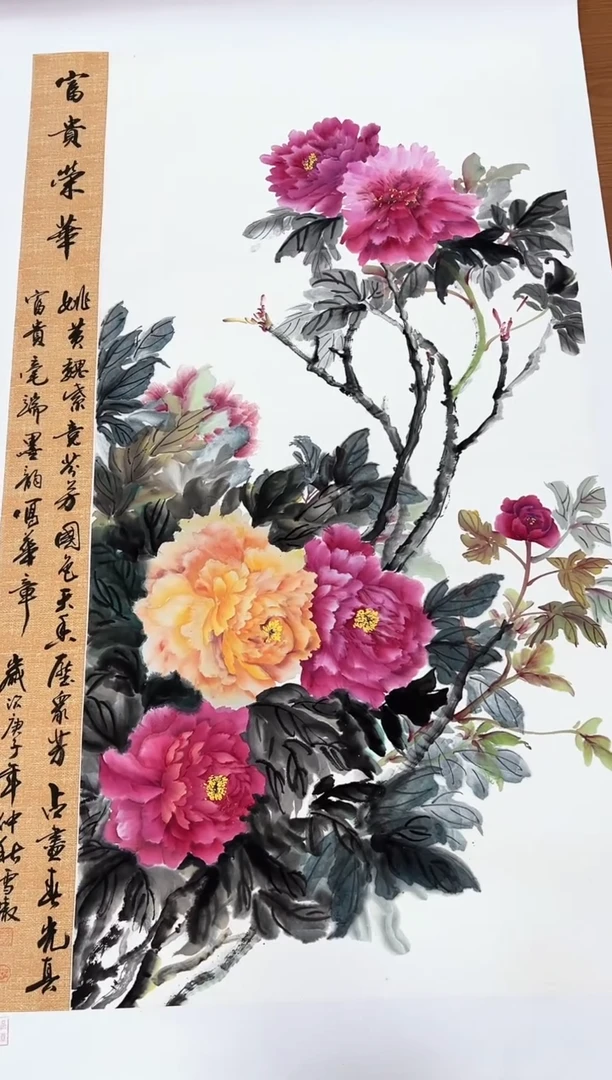 富貴荣華
姚黄魏紫竞芬芳國色天香壓眾芳占盡春光真
富貴毫端墨韵写華章
歲次庚子年仲秋雪